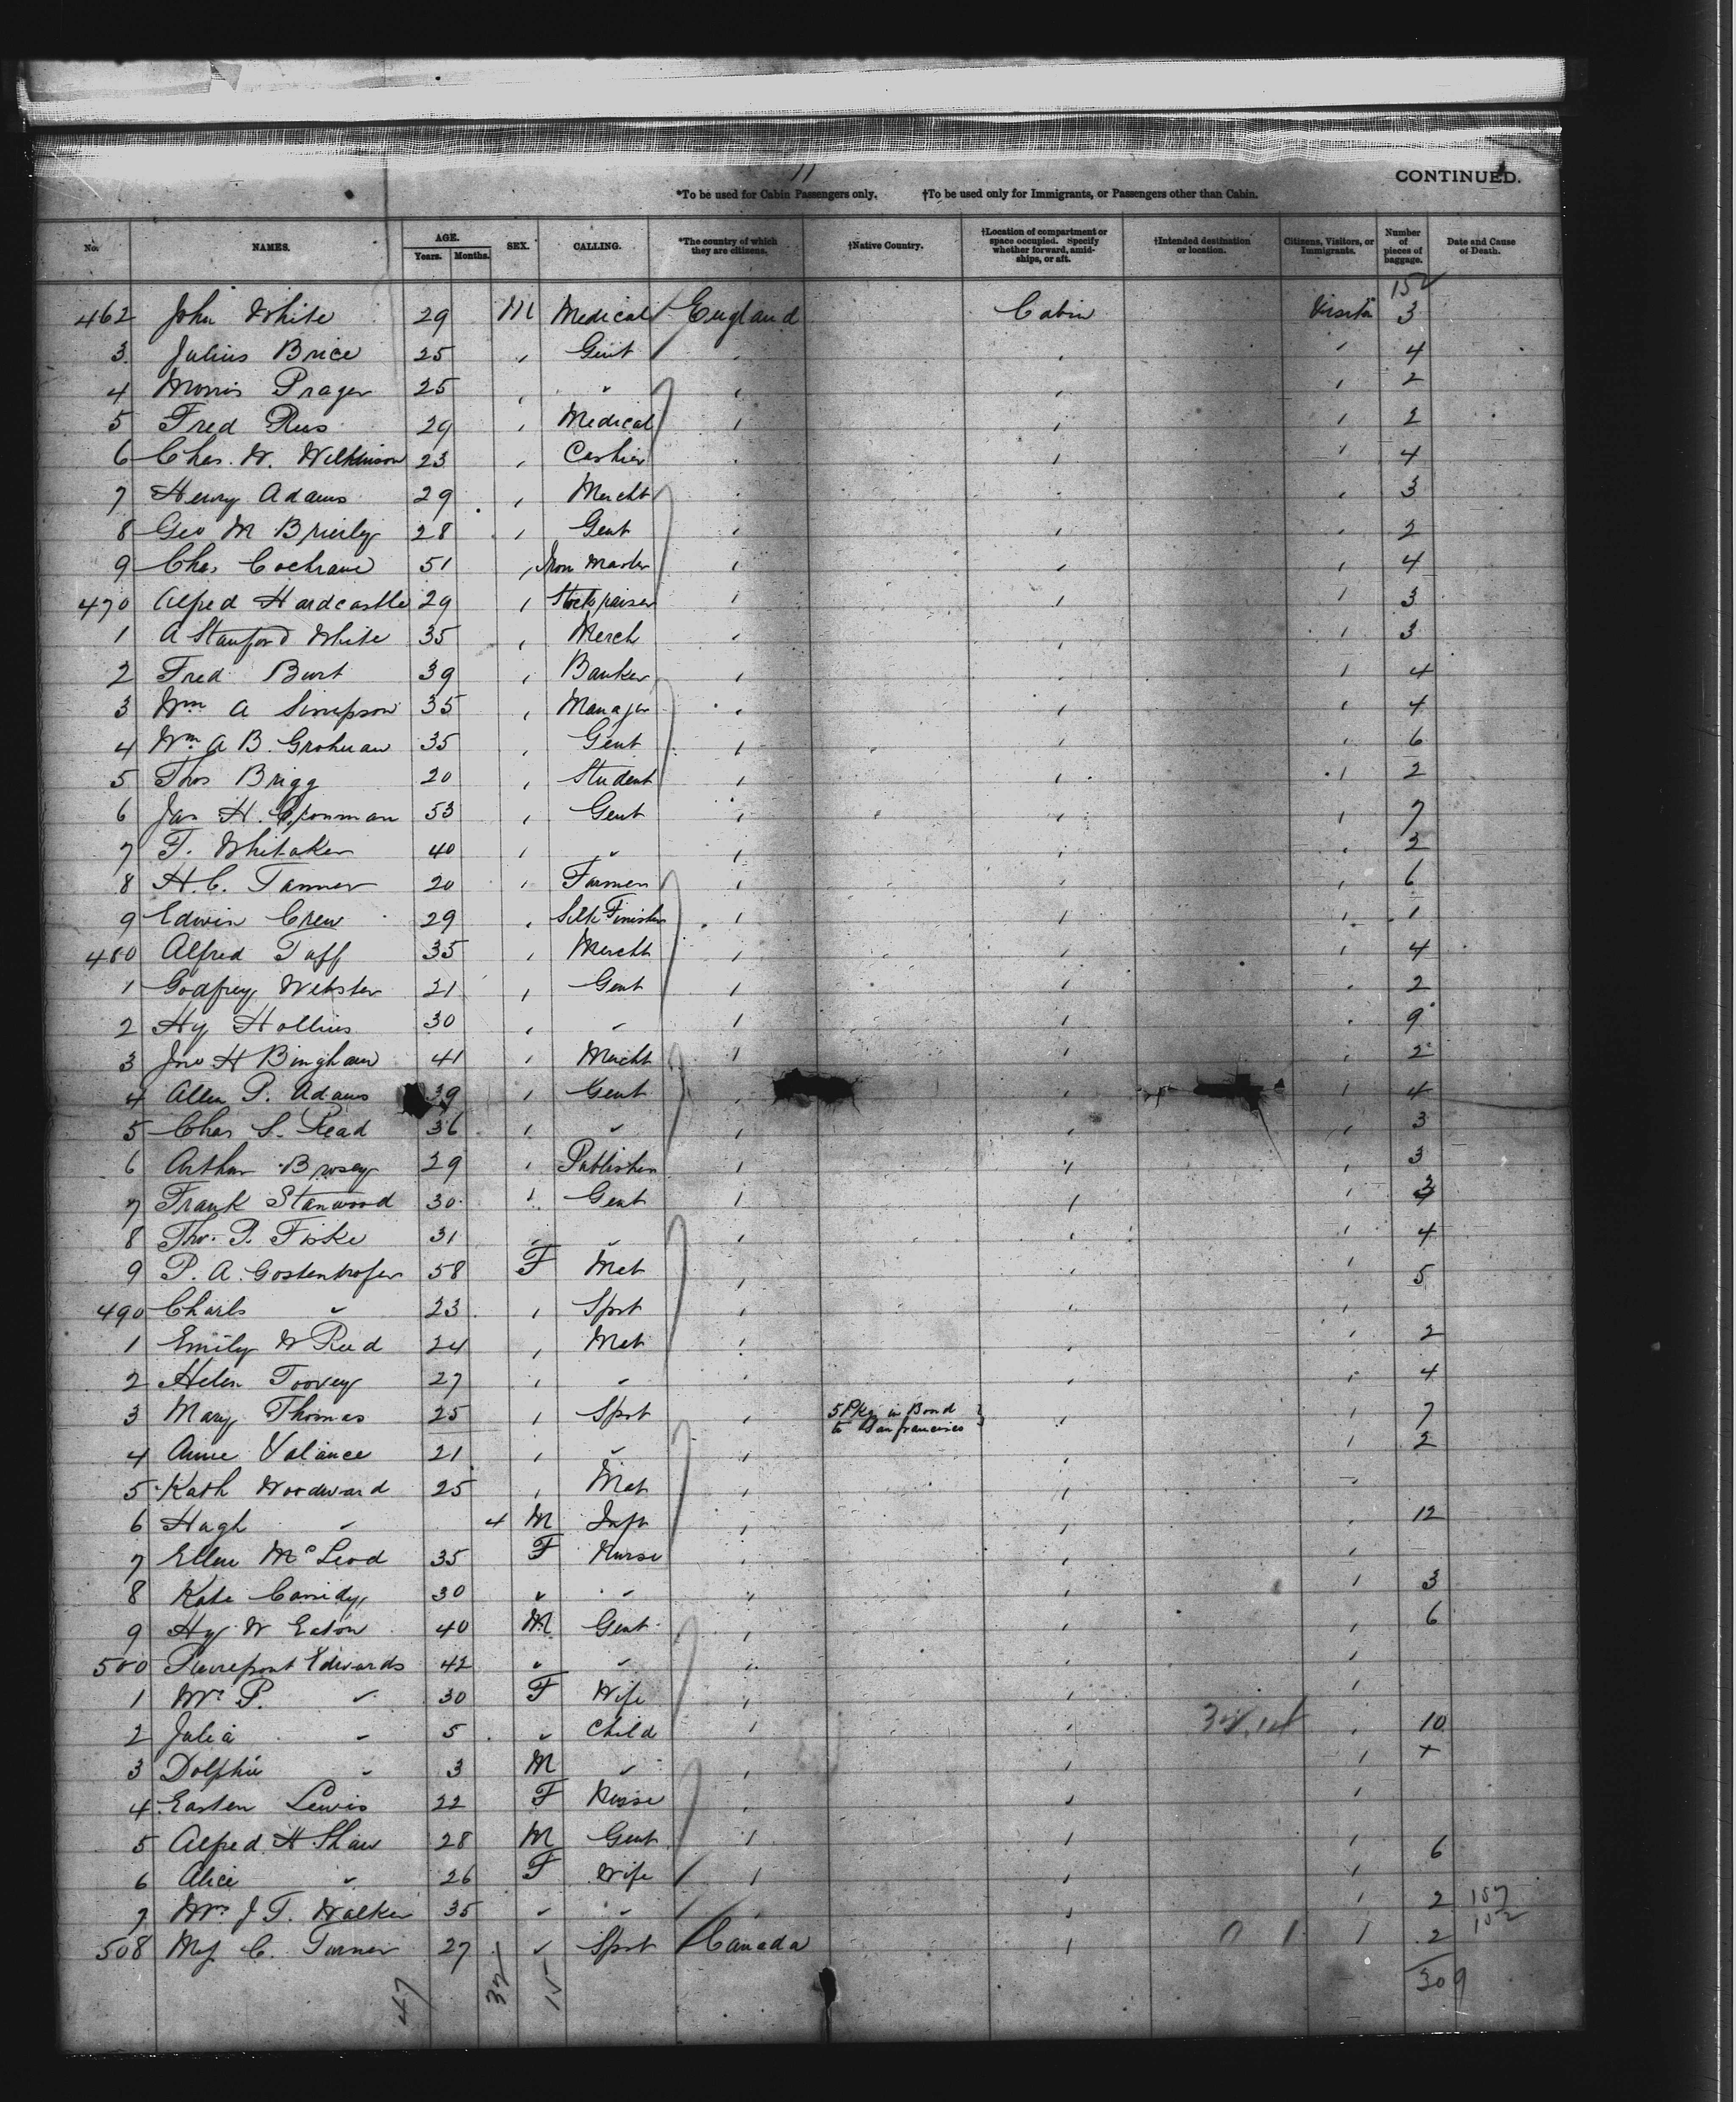 11
CONTINUED.
*To be used for Cabin Passengers only. †To be used only for Immigrants, or Passengers other than Cabin.
No. NAMES. AGE. Years. Months. SEX. CALLING. *The country of which they are citizens. †Native Country. †Location of compartment or space occupied. Specify whether forward, amidships, or aft. †Intended destination or location. Citizens, Visitors, or Immigrants. Number of pieces of baggage. Date and Cause of Death.
152
462 John White 29 M Medical England Cabin Visitor 3
3 Julius Brice 25 " Gent " " " 4
4 Morris Prager 25 " " " " " 2
5 Fred Rees 29 " Medical " " " 2
6 Chas. W. Wilkinson 23 " Cashier " " " 4
7 Henry Adams 29 " Mercht " " " 3
8 Geo M Brierly 28 " Gent " " " 2
9 Chas Cochrane 51 " Iron Master " " " 4
470 Alfred Hardcastle 29 " Stock raiser " " " 3
1 A Stanford White 35 " Merch " " " 3
2 Fred Burt 39 " Banker " " " 4
3 Wm A Simpson 35 " Manager " " " 4
4 Wm A B. Grohman 35 " Gent " " " 6
5 Thos Brigg 20 " Student " " " 2
6 Jas H. 53 " Gent " " " 7
7 F. Whitaker 40 " " " " " 2
8 H. C. Tanner 20 " Farmer " " " 6
9 Edwin Crew 29 " Silk Finisher " " " 1
480 Alfred Taff 35 " Mercht " " " 4
1 Godfrey Webster 21 " Gent " " " 2
2 Hy Hollins 30 " " " " " 9
3 Jno H Bingham 41 " Mercht " " " 2
4 Allen P. Adams 39 " Gent " " " 4
5 Chas S. Read 36 " " " " " 3
6 Arthur 29 " Publisher " " " 3
7 Frank Stanwood 30 " Gent " " " 3
8 Tho. P. Fiske 31 " " " " " 4
9 P. A. Gostenhofer 58 F Mat " " " 5
490 Charls " 23 " Spst " " "
1 Emily W Reed 24 " Mat " " " 2
2 Helen Toovey 27 " " " " " 4
3 Mary Thomas 25 " Spst " 5 Pkgs in Bond to San francisco " " 7
4 Annie Valance 21 " " " " " 2
5 Kath Woodward 25 " Mat " " "
6 Hugh " 4 M Inft " " " 12
7 Ellen McLeod 35 F Nurse " " "
8 Kate Cassidy 30 " " " " " 3
9 Hy W Eaton 40 M Gent " " " 6
500 Pierrepont Edwards 42 " " " " "
1 Mrs P. " 30 F Wife " " "
2 Julia " 5 " Child " " " 10
3 Dolphie " 3 M " " " " +
4 Easten Lewis 22 F Nurse " " "
5 Alfred H Shaw 28 M Gent " " " 6
6 Alice " 26 F Wife " " "
7 Mrs J T. Walker 35 " " " " " 2 157
508 C. Turner 27 " Spst Canada " 0 1 " 2 152
47 32 15 309